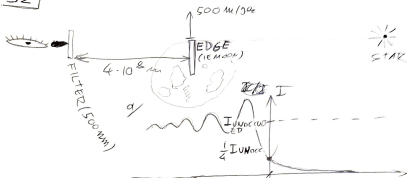 500 m/sec
EDGE
(IE MOON)
4·10⁸ m
STAR
FILTER (500 nm)
a/
I
I UNOCCULT
ED
1/4 I UNOCC